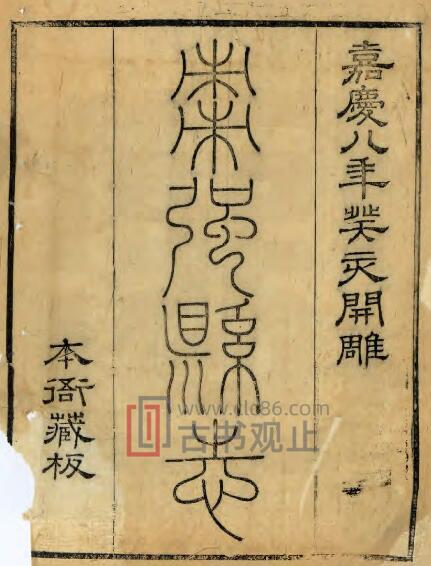 嘉慶八年癸亥開雕
棗強縣志
本衙藏板
古书观止